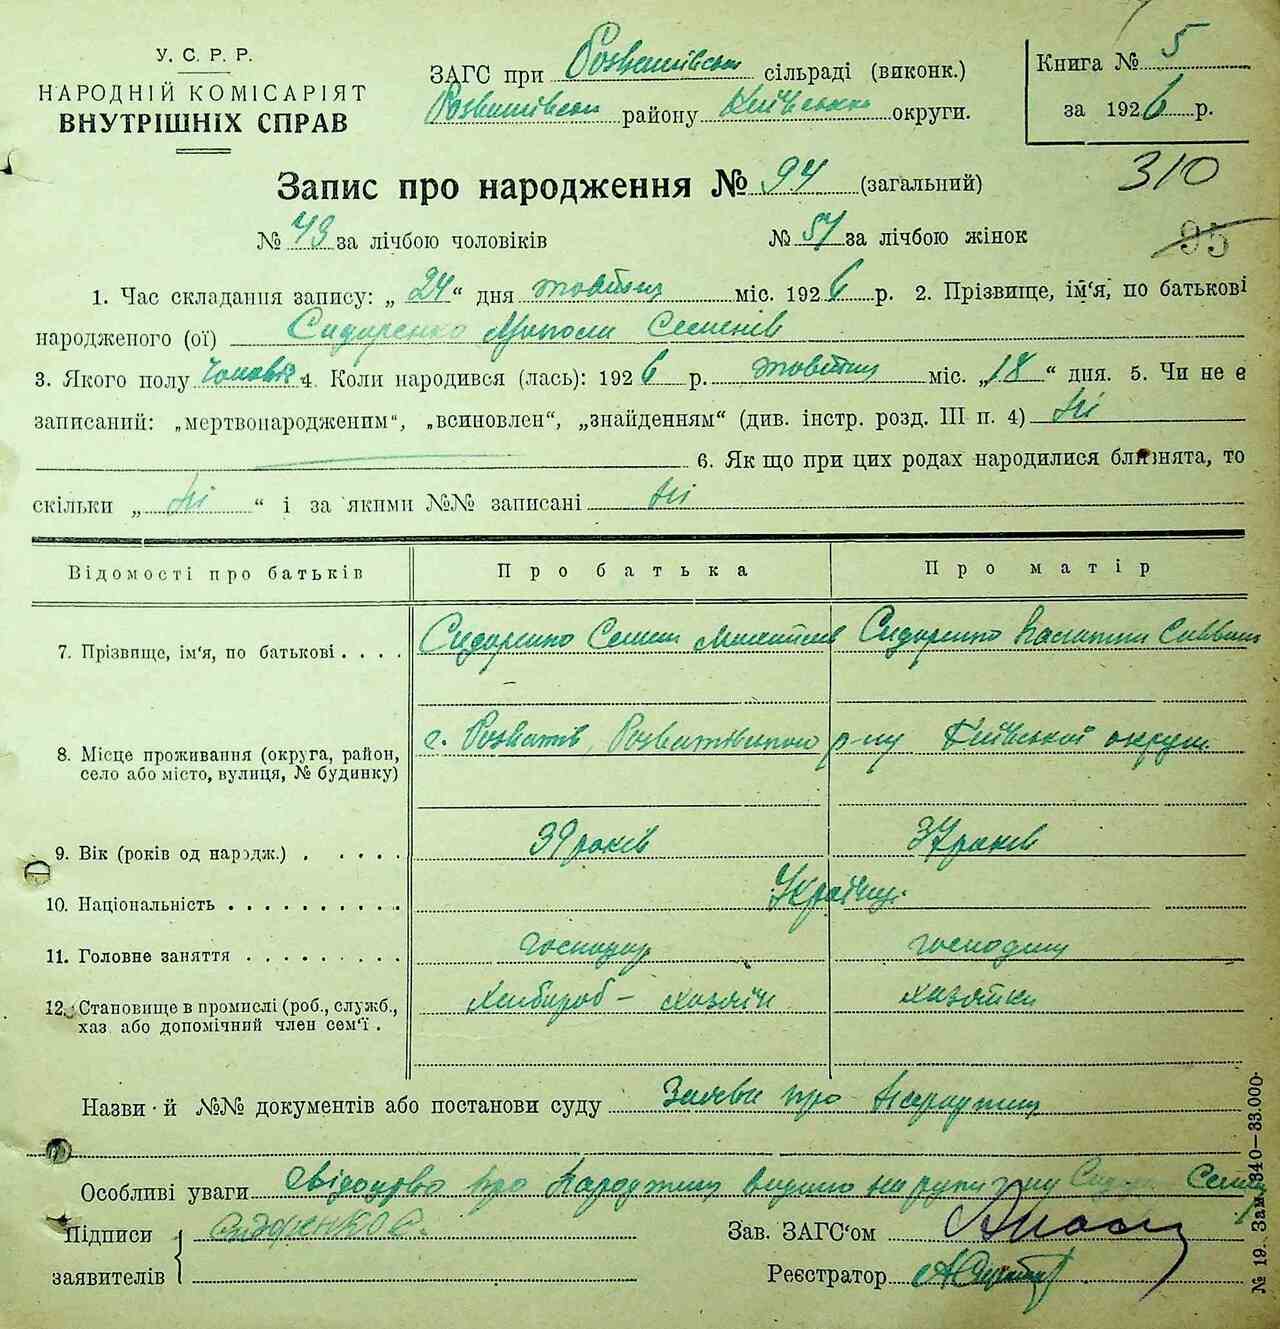 У. С. Р. Р.
НАРОДНІЙ КОМІСАРІЯТ
ВНУТРІШНІХ СПРАВ
ЗАГС при Розважівськ сільраді (виконк.)
Розважівськ району Київської округи.
Книга № 5
за 1926 р.
310
Запис про народження № 94 (загальний)
№ 43 за лічбою чоловіків № 51 за лічбою жінок
95
1. Час складання запису: „ 24 “ дня жовтня міс. 1926 р. 2. Прізвище, ім‘я, по батькові
народженого (ої) Сидоренко Семенів
3. Якого полу чоловіч 4. Коли народився (лась): 1926 р. жовтня міс. „18“ дня. 5. Чи не є
записаний: „мертвонародженим“, „всиновлен“, „знайденням“ (див. інстр. розд. III п. 4) Ні
6. Як що при цих родах народилися близнята, то
скільки „ Ні “ і за якими №№ записані Ні
Відомості про батьків Про батька Про матір
7. Прізвище, ім‘я, по батькові . . . . Сидоренко Семен Сидоренко
8. Місце проживання (округа, район, село або місто, вулиця, № будинку) с. Розважів, Розважівської р-ну Київської округи
9. Вік (років од народж.) . . . . . 39 років 37 років
10. Національність . . . . . . . . . . Українці
11. Головне заняття . . . . . . . . . господар господиня
12. Становище в промислі (роб., служб., хаз або допомічний член сем‘ї . Хлібороб – хазяїн хазяйка
Назви й №№ документів або постанови суду Заява про народження
Особливі уваги Свідоцтво про народження видано на руки
Підписи Сидоренко С.
заявителів
Зав. ЗАГС‘ом
Реєстратор
№ 19. Зам. 340—33.000.